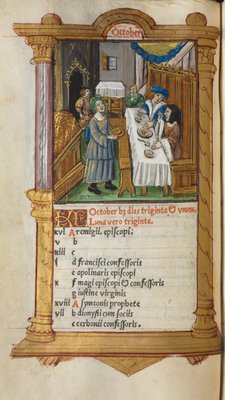 October
KL October hȝ dies triginta & unum.
Luna vero triginta.
xvi A remigii. episcopi.
v b
xiii c
ii d francisci confessoris
e apolinaris episcopi
x f magi episcopi & confessoris
g iustine virginis
xviii A symeonis prophete
vii b dionysii cum sociis
e cerbonii confessoris.